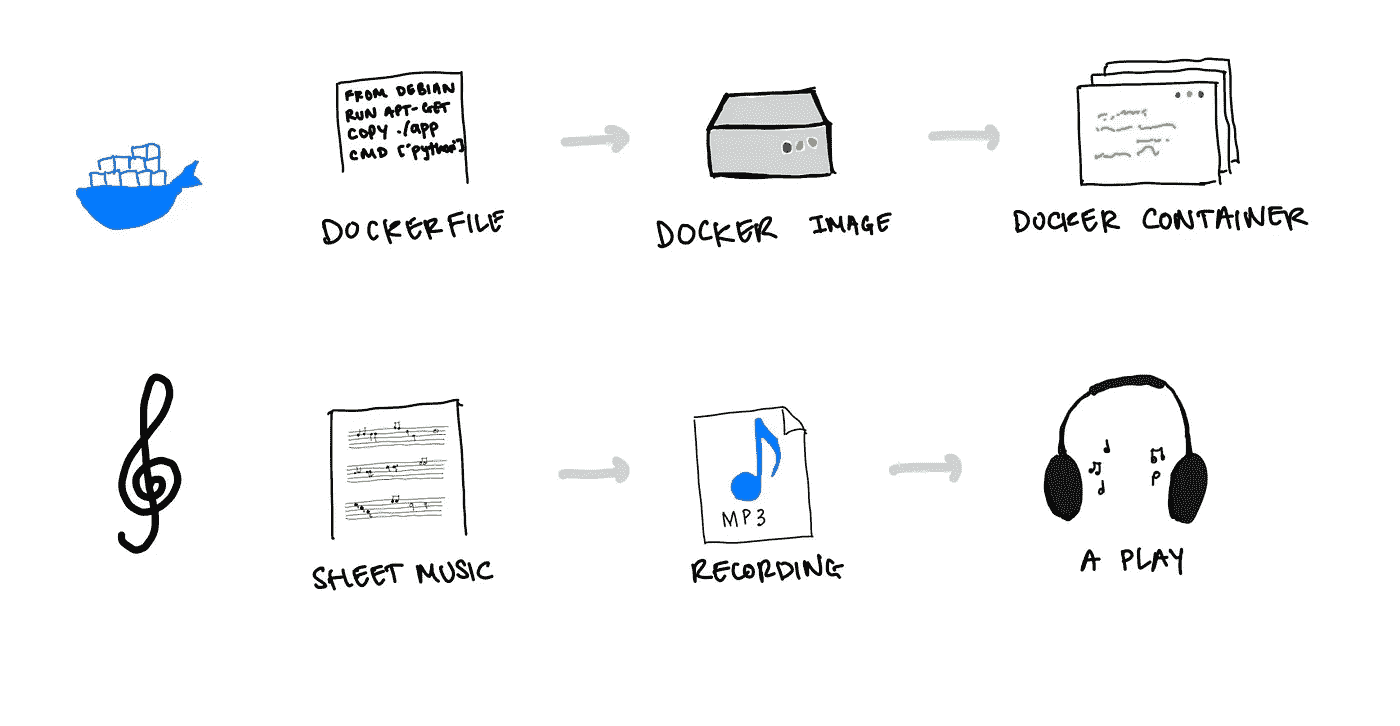 FROM DEBIAN
RUN APT-GET
COPY ./app
CMD ["python"]
DOCKERFILE
DOCKER IMAGE
DOCKER CONTAINER
MP3
SHEET MUSIC
RECORDING
A PLAY